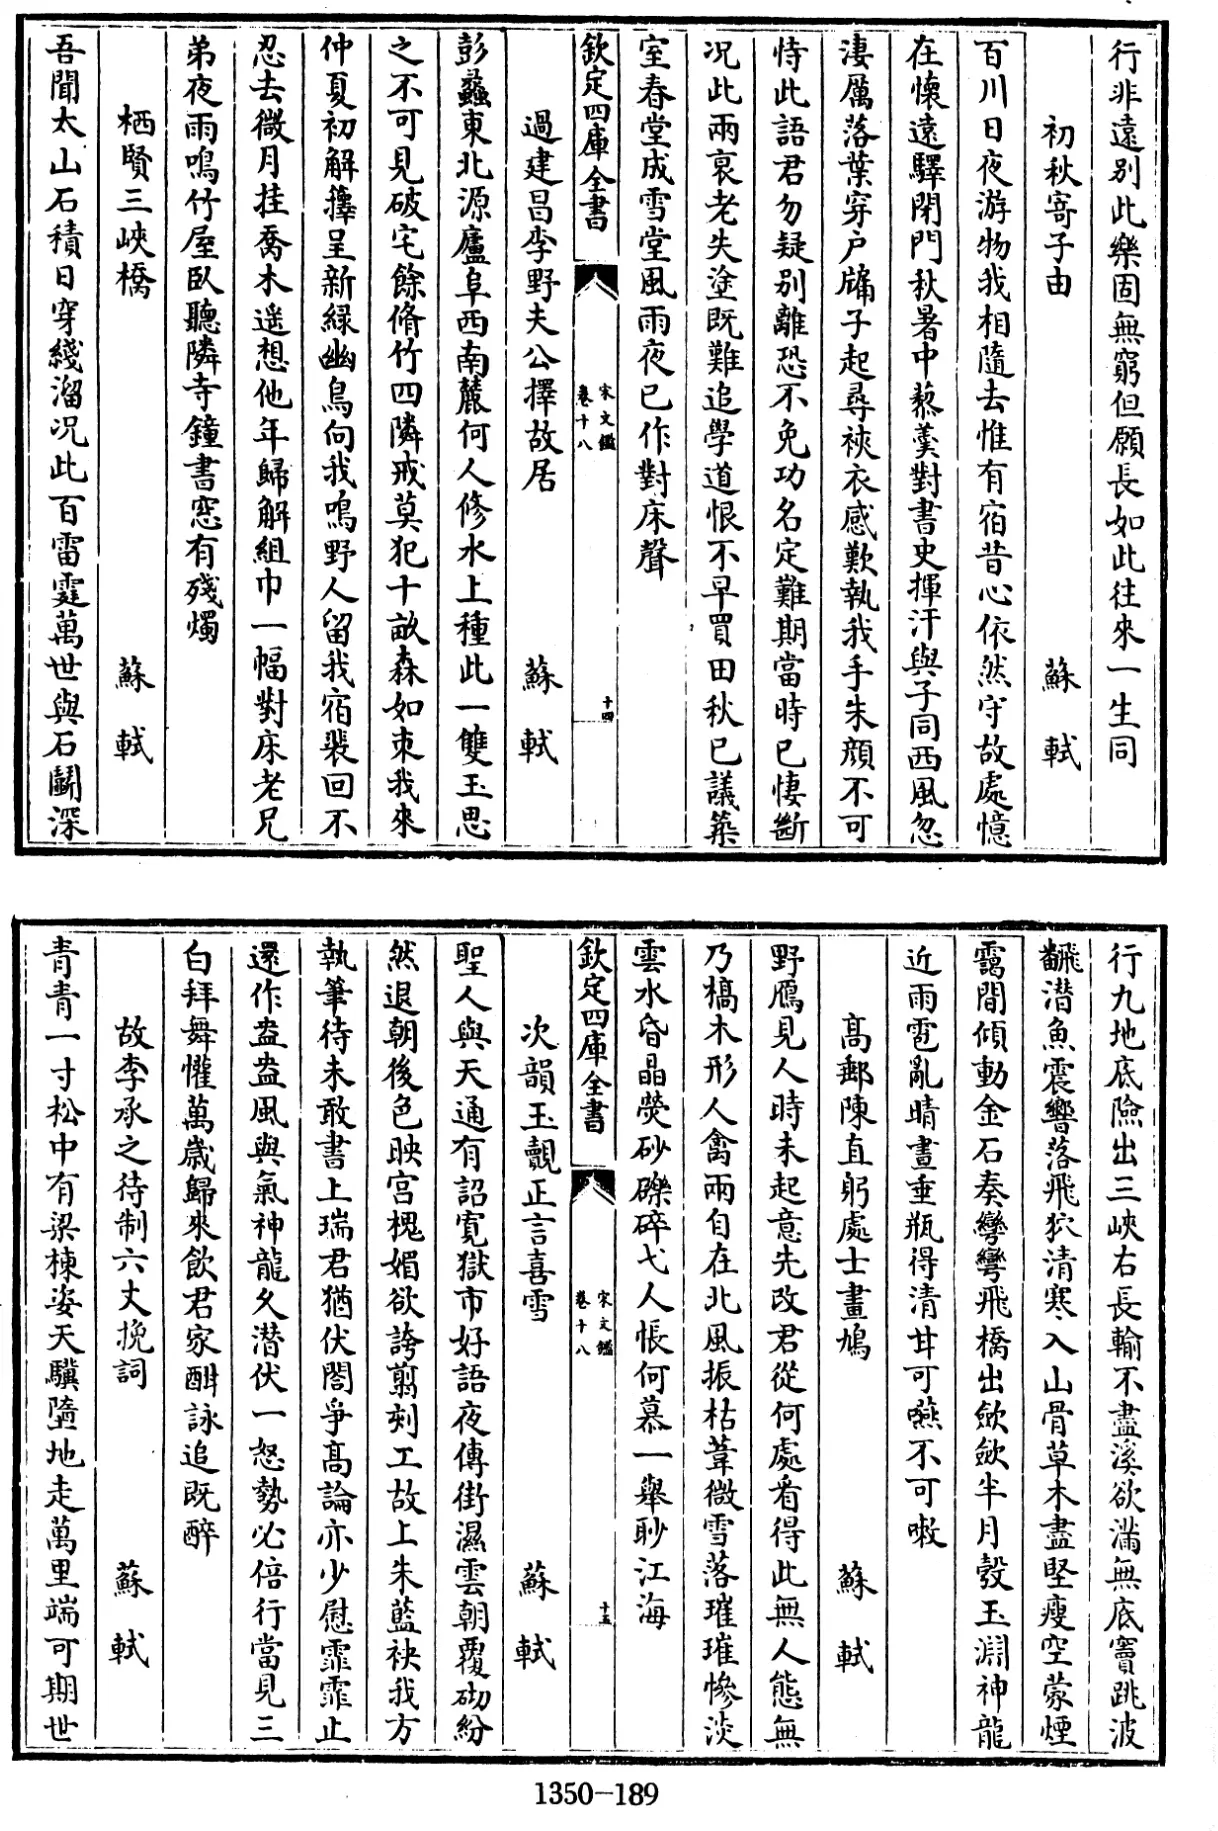 行非遠别此樂固無窮但願長如此往來一生同
初秋寄子由 蘇軾
百川日夜游物我相隨去惟有宿昔心依然守故處憶
在懷遠驛閉門秋暑中藜羮對書史揮汗與子同西風忽
淒厲落葉穿户牖子起尋裌衣感歎執我手朱顔不可
恃此語君勿疑别離恐不免功名定難期當時已悽斷
况此兩衰老失塗既難追學道恨不早買田秋已議築
室春堂成雪堂風雨夜已作對床聲
欽定四庫全書 宋文鑑 卷十八 十四
過建昌李野夫公擇故居 蘇軾
彭蠡東北源廬阜西南麓何人修水上種此一雙玉思
之不可見破宅餘脩竹四隣戒莫犯十畝森如束我來
仲夏初解籜呈新緑幽鳥向我鳴野人留我宿裴回不
忍去微月挂喬木遥想他年歸解組巾一幅對床老兄
弟夜雨鳴竹屋臥聽隣寺鐘書窓有殘燭
栖賢三峽橋 蘇軾
吾聞太山石積日穿綫溜况此百雷霆萬世與石鬬深
行九地底險出三峽右長輸不盡溪欲滿無底竇跳波
翻潜魚震響落飛狖清寒入山骨草木盡堅瘦空蒙煙
靄間傾動金石奏彎彎飛橋出歛歛半月彀玉淵神龍
近雨雹亂晴晝垂瓶得清甘可嚥不可嗽
髙郵陳直躬處士畫鳩 蘇軾
野鴈見人時未起意先改君從何處看得此無人態無
乃槁木形人禽兩自在北風振枯葦微雪落璀璀慘淡
雲水昏晶熒砂礫碎弋人悵何慕一舉眇江海
欽定四庫全書 宋文鑑 卷十八 十五
次韻王覿正言喜雪 蘇軾
聖人與天通有詔寛獄市好語夜傳街濕雲朝覆砌紛
然退朝後色映宫槐媚欲誇剪刻工故上朱藍袂我方
執筆待未敢書上瑞君猶伏閤爭髙論亦少慰霏霏止
還作盎盎風與氣神龍久潜伏一怒勢必倍行當見三
白拜舞懽萬歲歸來飲君家酣詠追既醉
故李承之待制六丈挽詞 蘇軾
青青一寸松中有梁棟姿天驥墮地走萬里端可期世
1350-189